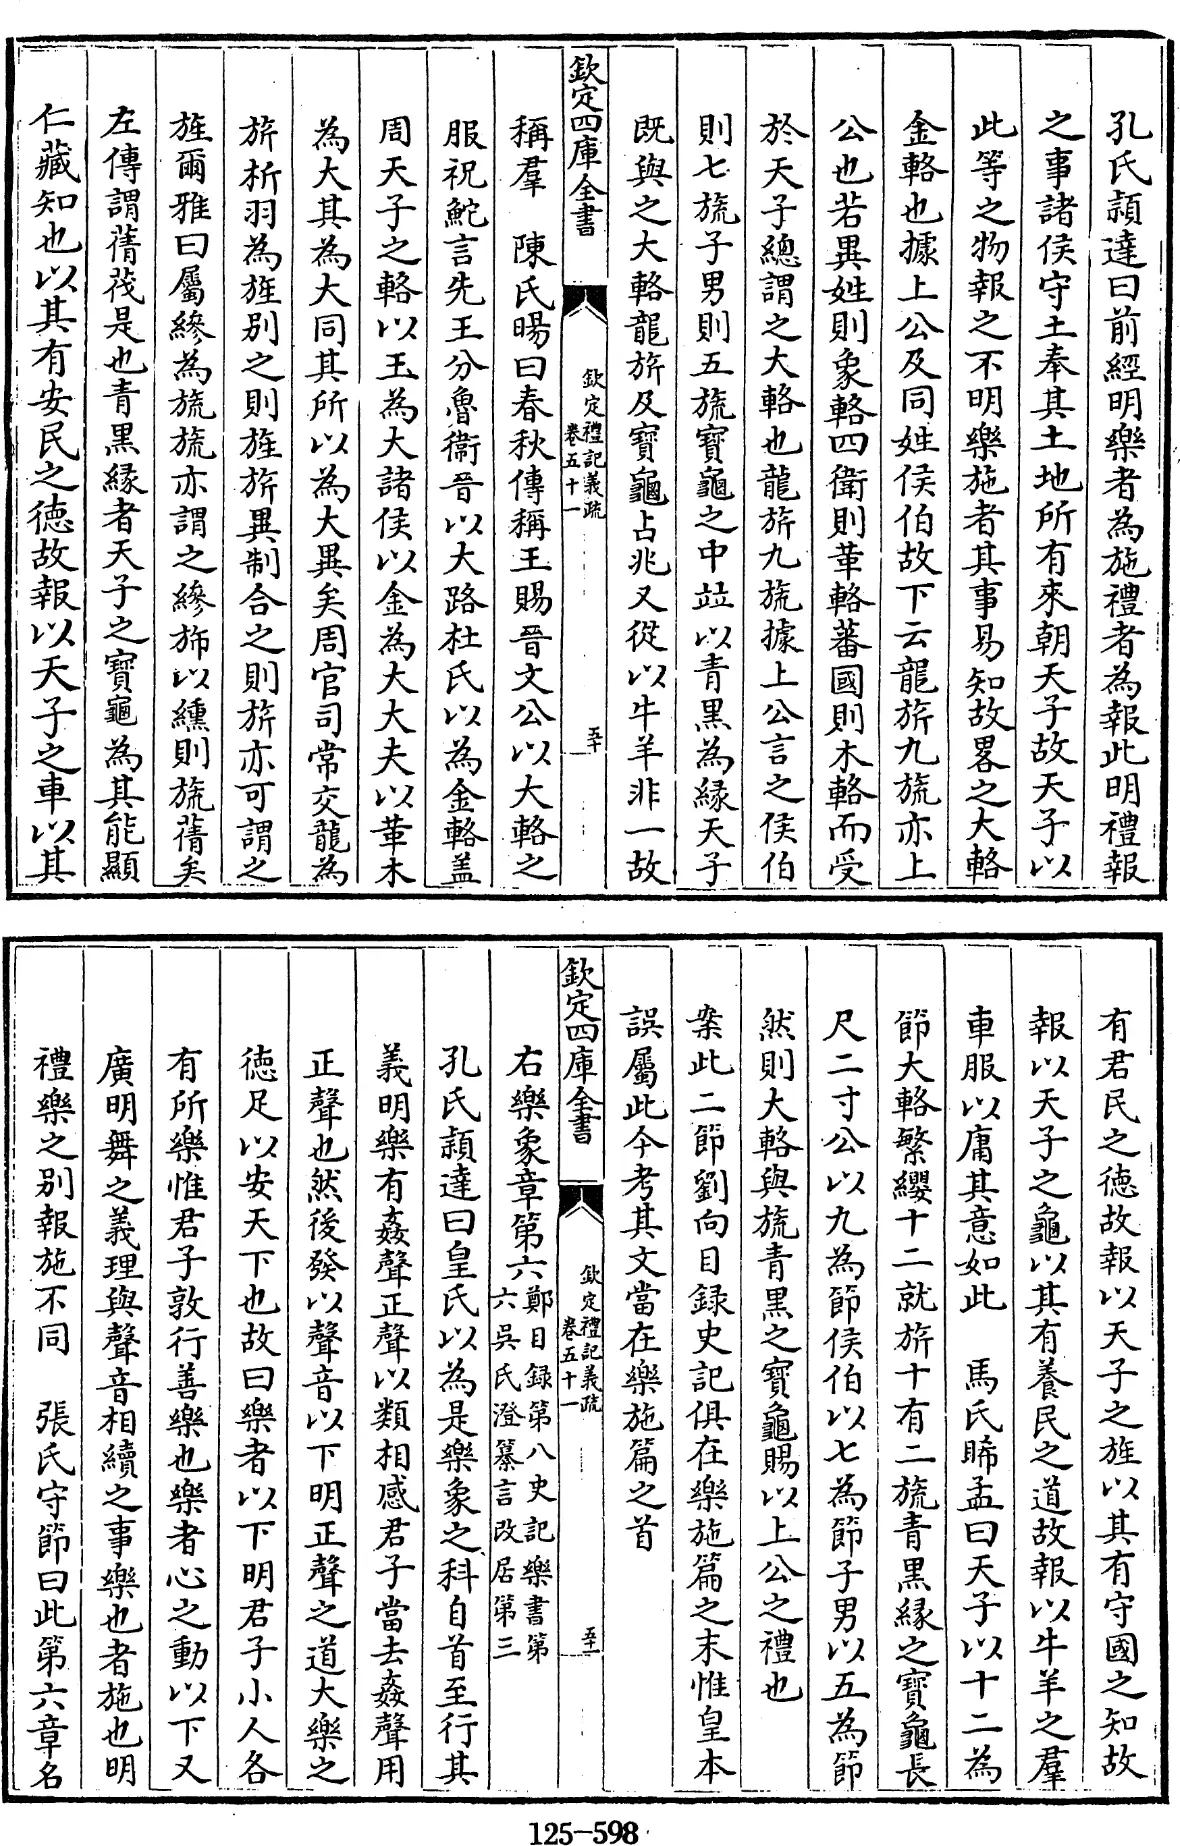 孔氏頴達曰前經明樂者為施禮者為報此明禮報
之事諸侯守土奉其土地所有來朝天子故天子以
此等之物報之不明樂施者其事易知故畧之大輅
金輅也據上公及同姓侯伯故下云龍旂九旒亦上
公也若異姓則象輅四衛則革輅蕃國則木輅而受
於天子總謂之大輅也龍旂九旒據上公言之侯伯
則七旒子男則五旒寳龜之中竝以青黑為緣天子
既與之大輅龍旂及寳龜占兆又從以牛羊非一故
欽定四庫全書
欽定禮記義疏
卷五十一
五十
稱羣　陳氏暘曰春秋傳稱王賜晉文公以大輅之
服祝鮀言先王分魯衞晉以大路杜氏以為金輅盖
周天子之輅以玉為大諸侯以金為大大夫以革木
為大其為大同其所以為大異矣周官司常交龍為
旂析羽為旌别之則旌旂異制合之則旂亦可謂之
旌爾雅曰屬縿為旒旒亦謂之縿斾以纁則旒蒨矣
左傳謂蒨茷是也青黑緣者天子之寳龜為其能顯
仁藏知也以其有安民之徳故報以天子之車以其
有君民之徳故報以天子之旌以其有守國之知故
報以天子之龜以其有養民之道故報以牛羊之羣
車服以庸其意如此　馬氏睎孟曰天子以十二為
節大輅繁纓十二就旂十有二旒青黑緣之寳龜長
尺二寸公以九為節侯伯以七為節子男以五為節
然則大輅與旒青黑之寳龜賜以上公之禮也
案此二節劉向目録史記俱在樂施篇之末惟皇本
誤屬此今考其文當在樂施篇之首
欽定四庫全書
欽定禮記義疏
卷五十一
五十一
右樂象章第六鄭目録第八史記樂書第
六吳氏澄纂言改居第三
孔氏頴達曰皇氏以為是樂象之科自首至行其
義明樂有姦聲正聲以類相感君子當去姦聲用
正聲也然後發以聲音以下明正聲之道大樂之
徳足以安天下也故曰樂者以下明君子小人各
有所樂惟君子敦行善樂也樂者心之動以下又
廣明舞之義理與聲音相續之事樂也者施也明
禮樂之别報施不同　張氏守節曰此第六章名
125-598